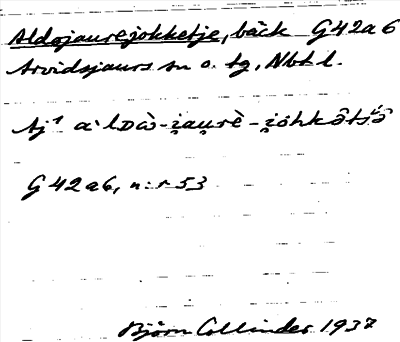 Aldojaurejokketje, bäck G42a6
Arvidsjaurs sn o. tg, Nbt l.
Aj¹ a·lᴅɑ̀-i̯au̯rè-i̯ȯhkə̑tśə̑
G42a6, n:r 53
Björn Collinder 1937